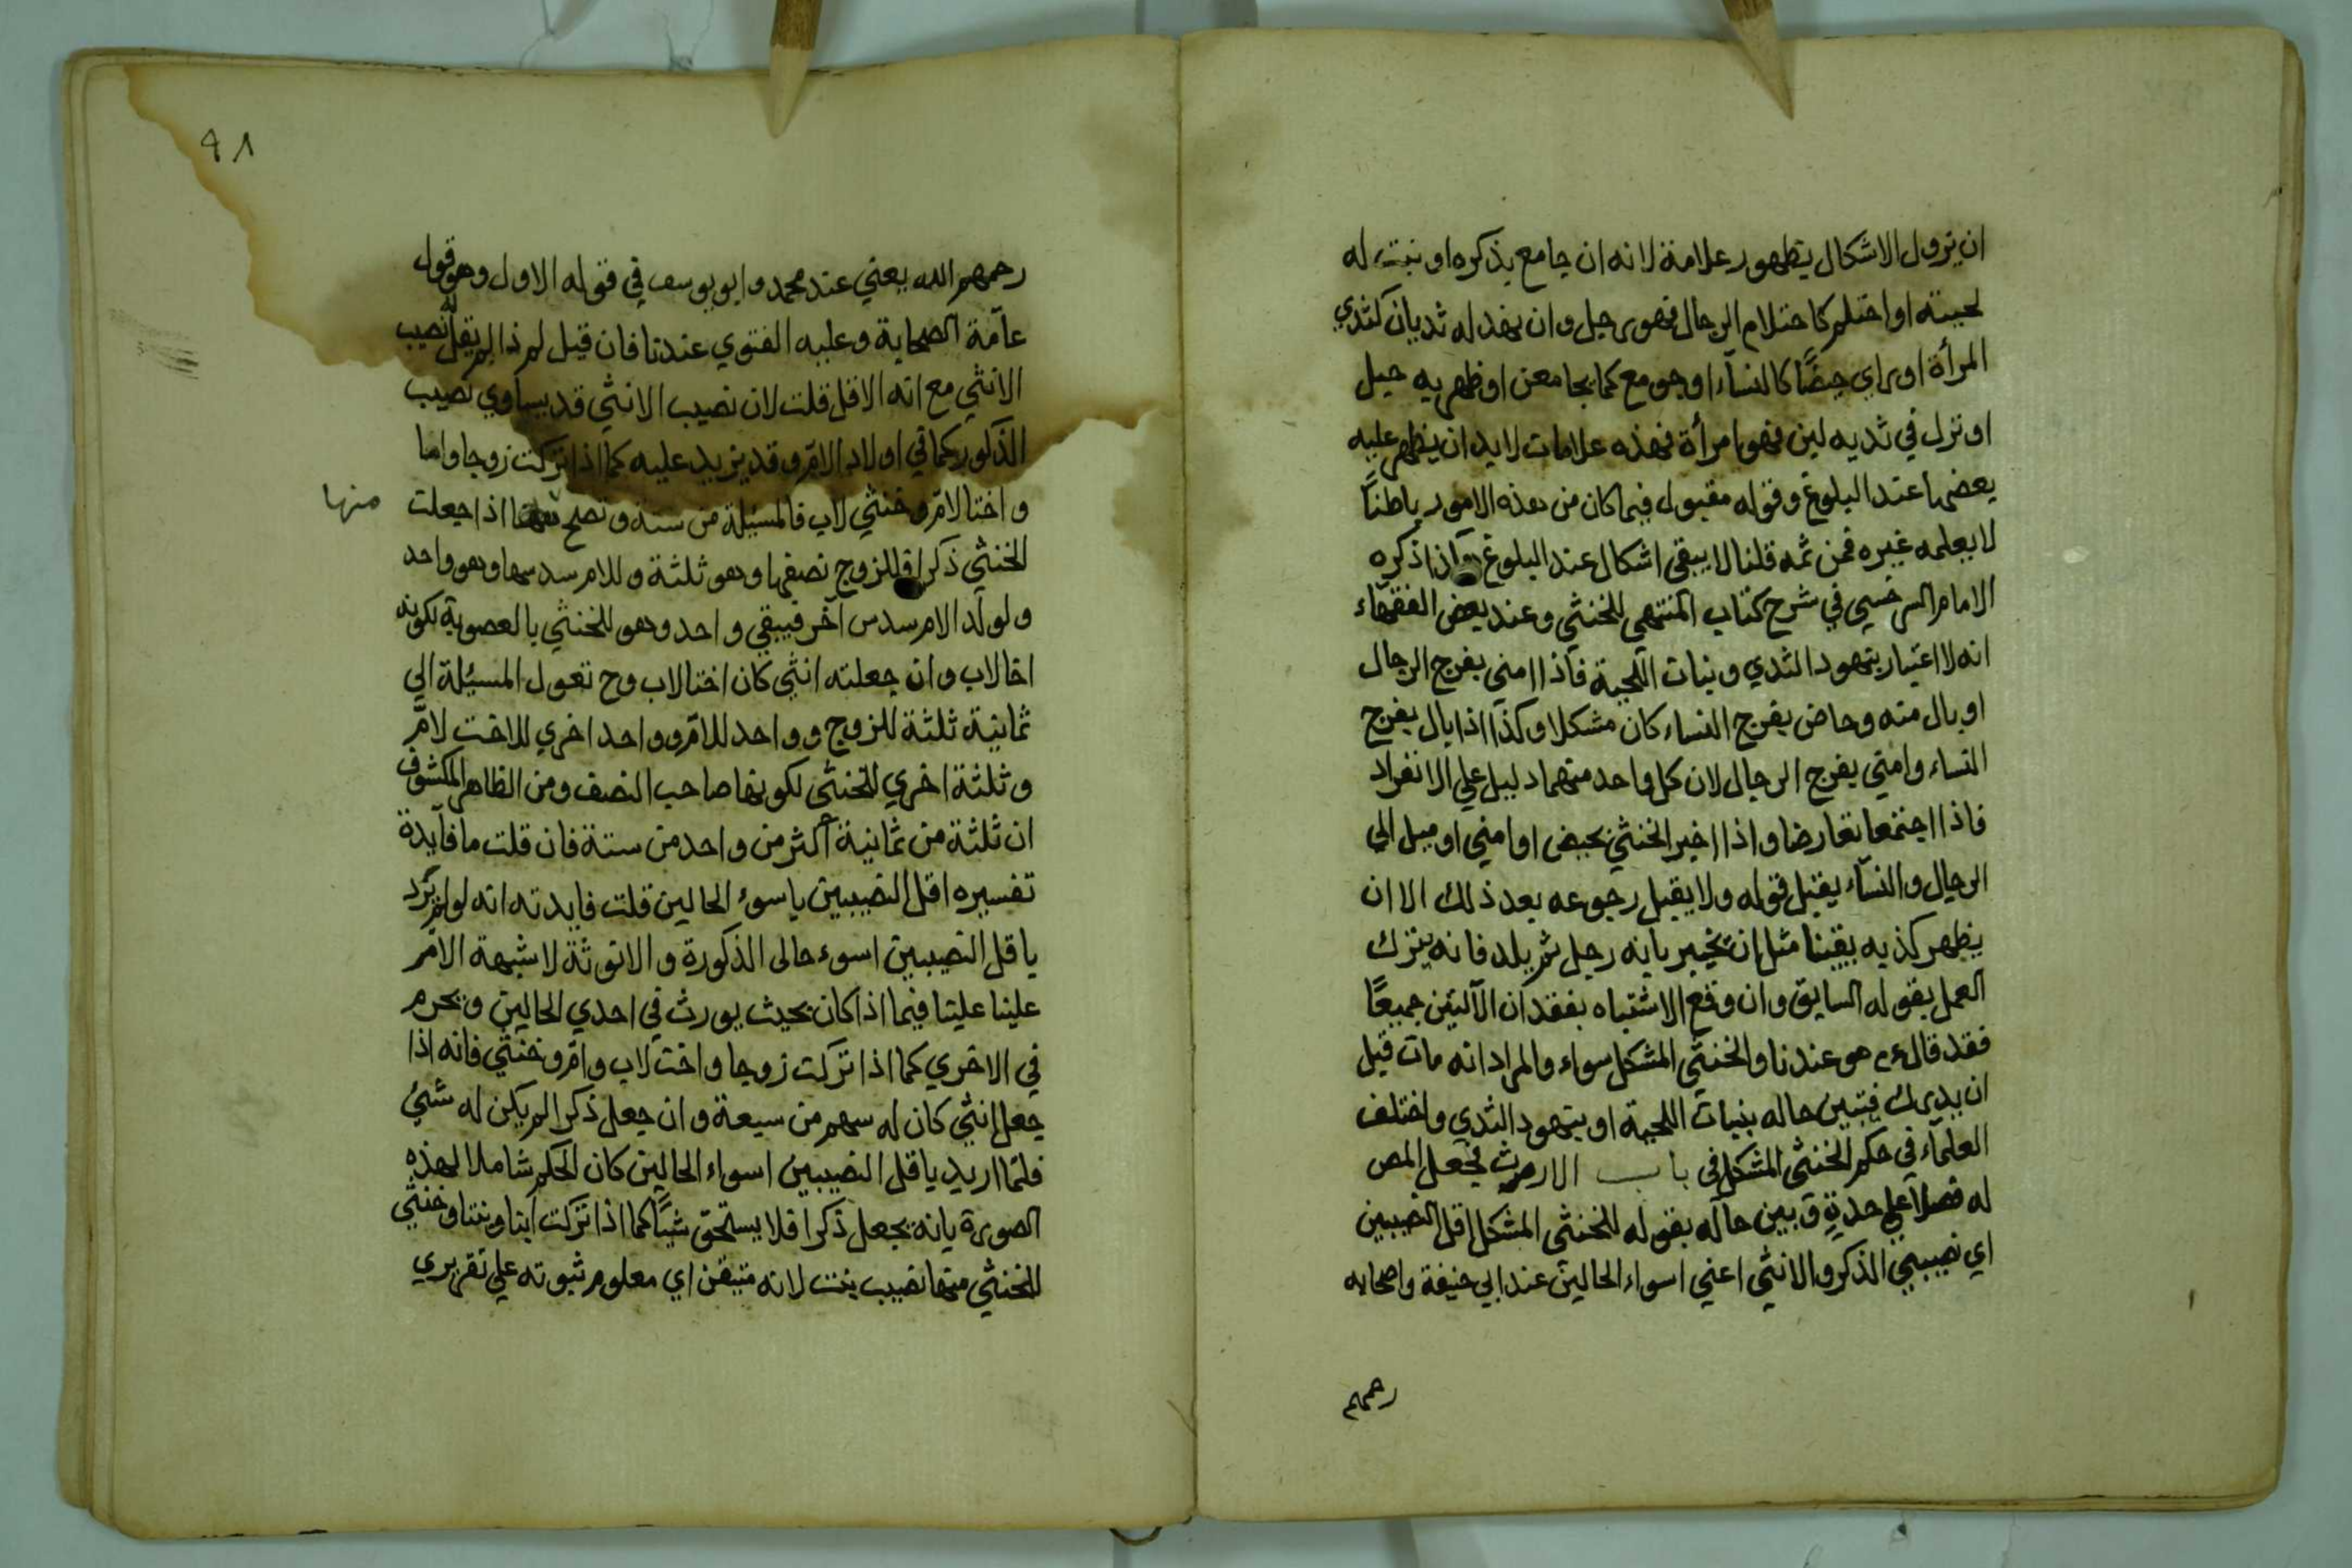 ان يزول الاشكال بظهور علامة لانه ان جامع بذكره او نبت له
لحيته او احتلم كاحتلام الرجال فهو رجل وان نهد له ثديان كثدي
المرأة او راي حيضًا كالنسآء او جومع كما يجامعن او ظهر به حبل
او نزل في ثديه لبن فهو امرأة فهذه علامات لابد ان يظهر عليه
بعضها عند البلوغ وقوله مقبول فيما كان من هذه الامور باطنًا
لا يعلمه غيره فمن ثمه قلنا لا يبقى اشكال عند البلوغ واذا ذكره
الامام السرخسي في شرح كتاب المنتهى للخنثي وعند بعض الفقهآء
انه لا اعتبار بنهود الثدي ونبات اللحية فاذا امني بفرج الرجال
او بال منه وحاض بفرج النساء كان مشكلا وكذا اذا بال بفرج
النساء وامني بفرج الرجال لان كل واحد منهما دليل علي الانفراد
فاذا اجتمعا تعارضا واذا اخبر الخنثي بحيض او امني او ميل الي
الرجال والنسآء يقبل قوله ولا يقبل رجوعه بعد ذلك الا ان
يظهر كذبه يقينا مثل ان يخبر بانه رجل ثم يلد فانه يترك
العمل بقوله السابق وان وقع الاشتباه بفقدان الآلتين جميعًا
فقد قال م هو عندنا والخنثي المشكل سواء والمراد انه مات قبل
ان يدرك فيتبين حاله بنبات اللحية او بنهود الثدي واختلف
العلمآء في حكم الخنثى المشكل فى باب الارث فجعل المص
له فصلا علي حدةٍ وبين حاله بقوله للخنثى المشكل اقل النصيبين
اي نصيبي الذكر والانثي اعني اسواء الحالين عند ابي حنيفة واصحابه
رحمهم
٩٨
رحمهم الله يعني عند محمد وابو يوسف في قوله الاول وهو قول
عآمة الصحابة وعليه الفتوي عندنا فان قيل لم ذا لم يقل له نصيب
الانثي مع انه الاقل قلت لان نصيب الانثي قد يساوي نصيب
الذكور كما في اولاد الام وقد يزيد عليه كما اذا تركت زوجا واما
واختا لام وخنثي لاب فالمسئلة من ستة وتصح منها اذا جعلت
منها
الخنثي ذكرا فللزوج نصفها وهو ثلثة وللام سدسها وهو واحد
ولولد الام سدس آخر فيبقي واحد وهو للخنثي بالعصوبة لكونه
اخا لاب وان جعلته انثي كان اختا لاب وح تعول المسئلة الي
ثمانية ثلثة للزوج وواحد للام وواحد اخري للاخت لام
وثلثة اخري للخنثى لكونها صاحب النصف ومن الظاهر المكشوف
ان ثلثة من ثمانية اكثر من واحد من ستة فان قلت ما فآيدة
تفسيره اقل النصيبين باسوء الحالين قلت فايدته انه لو لم يُرد
باقل النصيبين اسوء حالى الذكورة والانوثة لاشبهة الامر
علينا علينا فيما اذا كان بحيث يورث في احدي الحالين ويحرم
في الاخري كما اذا تركت زوجا واخت لاب وام وخنثي فانه اذا
جعل انثي كان له سهم من سبعة وان جعل ذكرا لم يكن له شئ
فلما اريد باقل النصيبين اسواء الحالين كان الحكم شاملا لهذه
الصورة بانه يجعل ذكرا فلا يستحق شيًا كما اذا تركت ابنا وبنتا وخنثي
للخنثي منها نصيب بنت لانه متيقن اي معلوم ثبوته علي تقريري